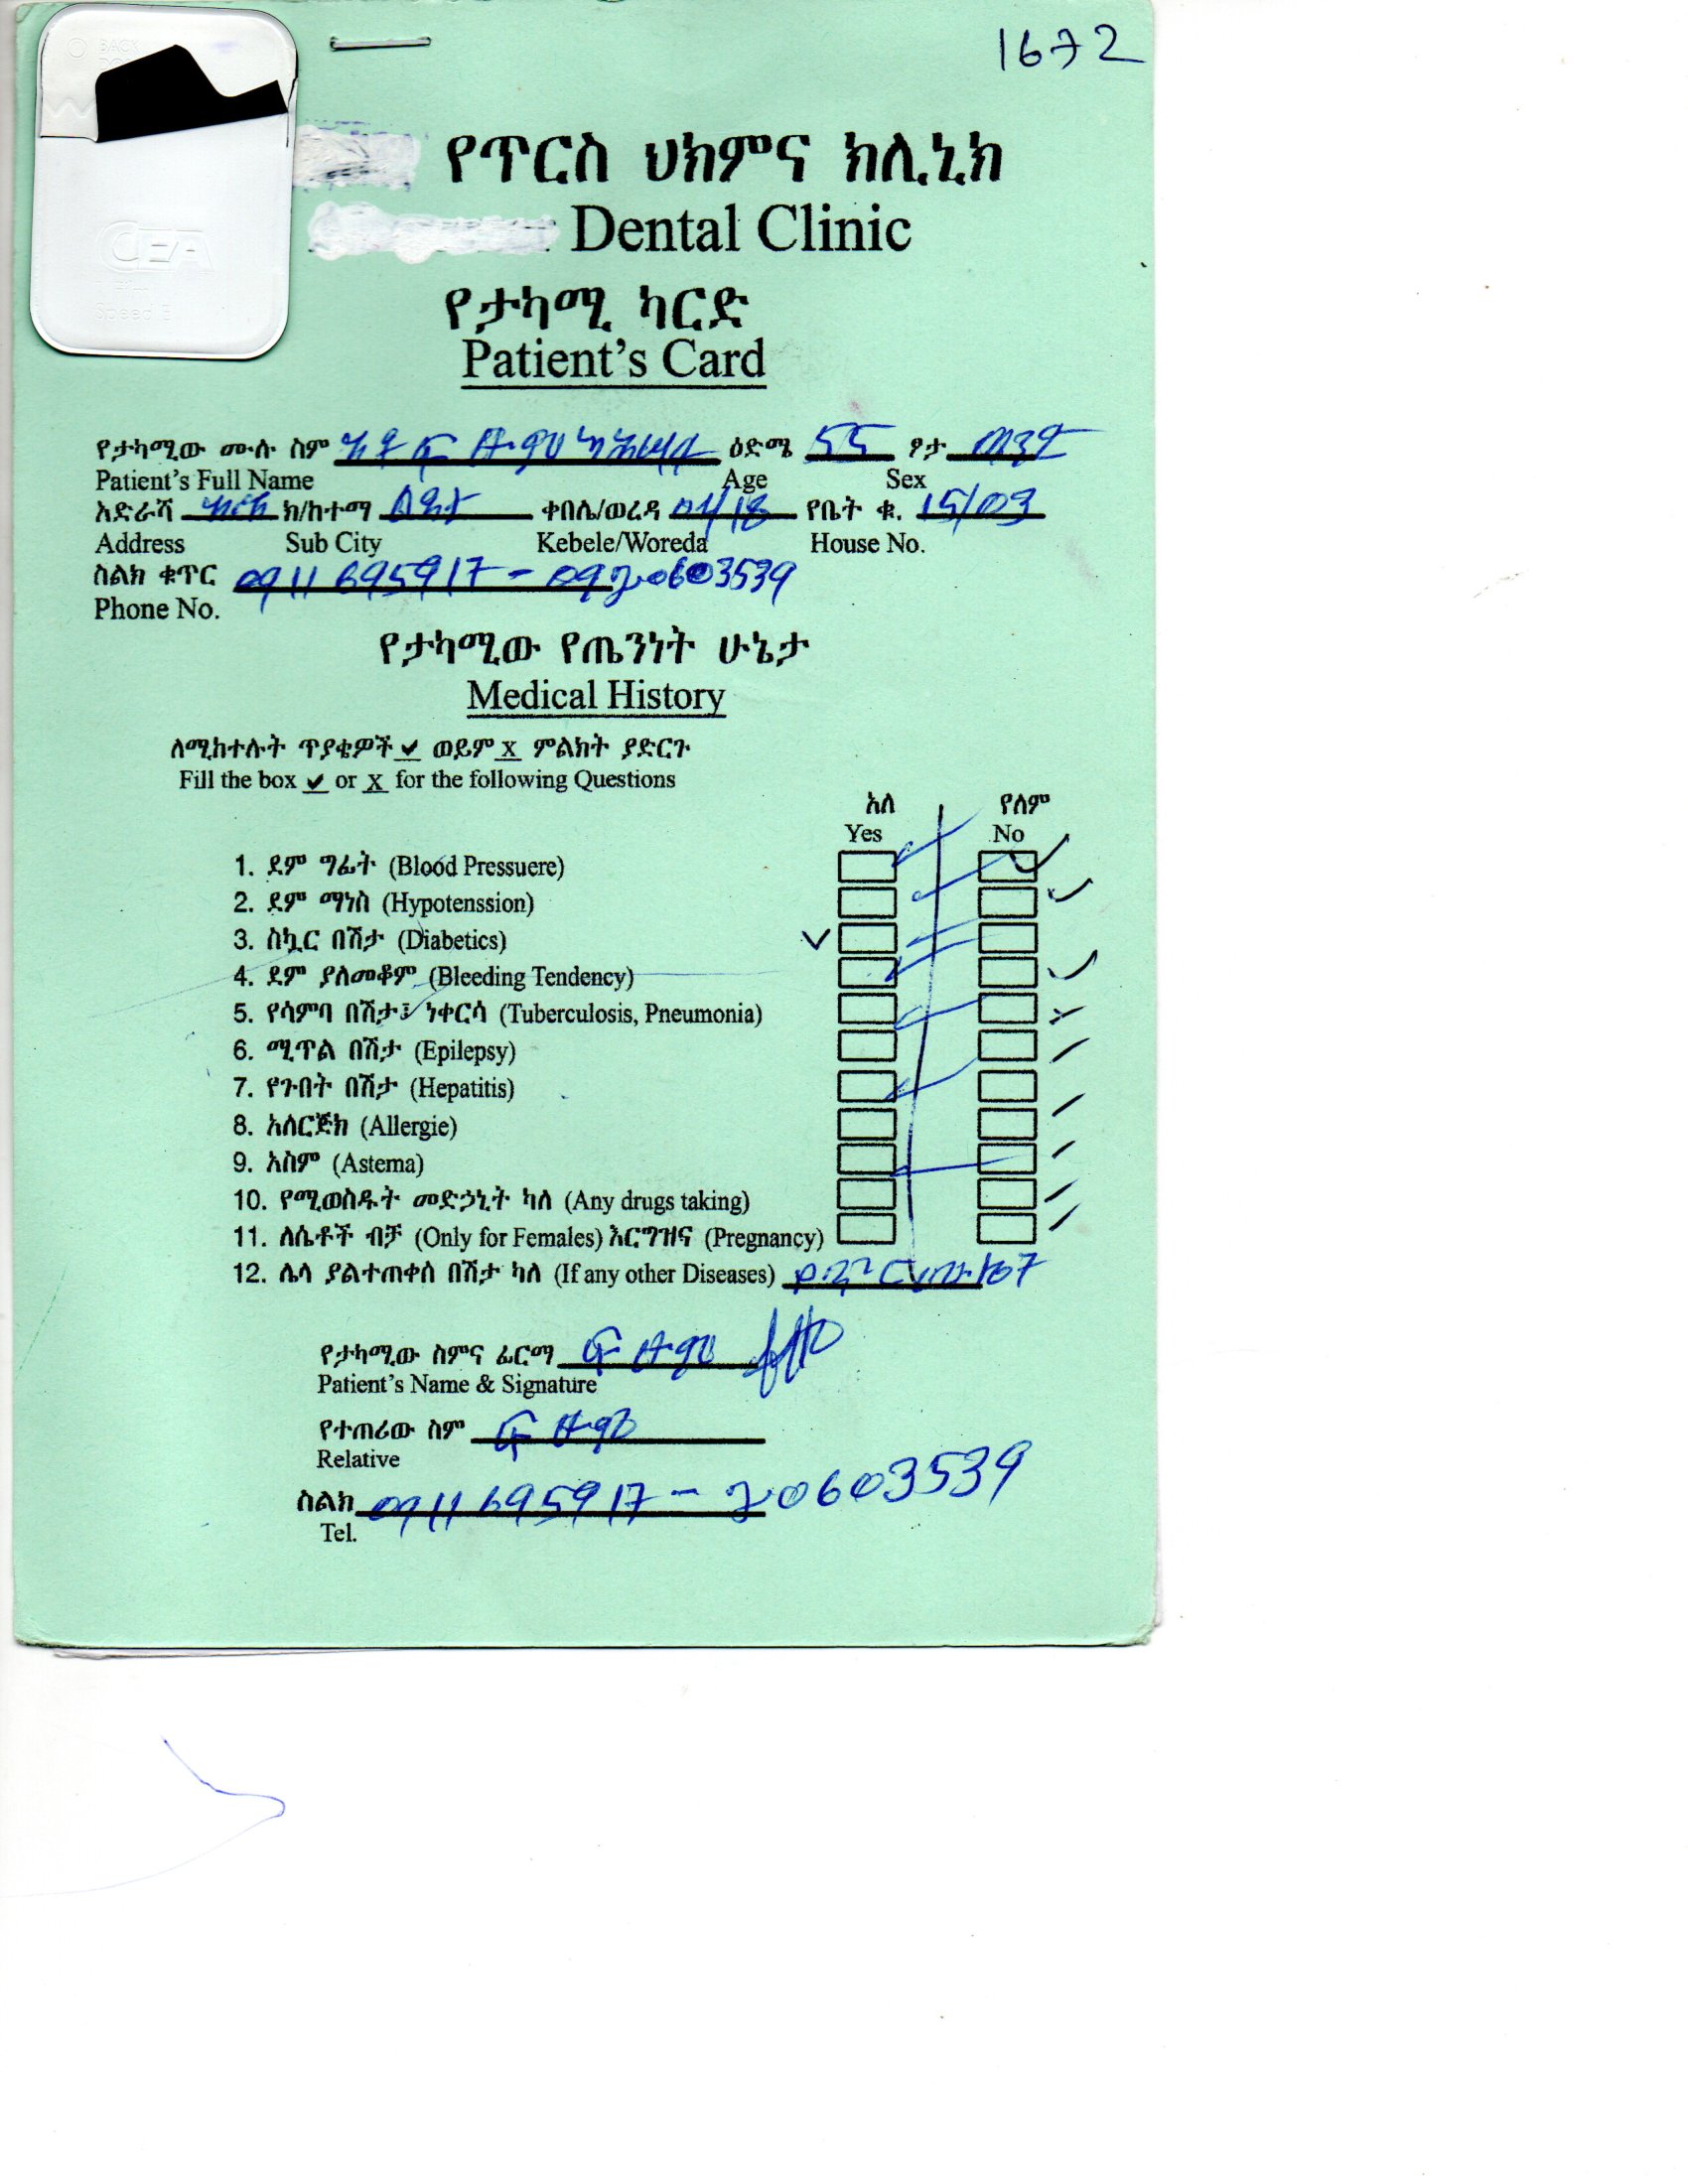 1672
የጥርስ ህክምና ክሊኒክ
Dental Clinic
የታካሚ ካርድ
Patient's Card
የታካሚው ሙሉ ስም ዕድሜ 55 ፆታ
Patient's Full Name Age Sex
አድራሻ ክ/ከተማ ልደታ ቀበሌ/ወረዳ 01/18 የቤት ቁ. 15/03
Address Sub City Kebele/Woreda House No.
ስልክ ቁጥር 0911695917 - 0920603539
Phone No.
የታካሚው የጤንነት ሁኔታ
Medical History
ለሚከተሉት ጥያቄዎች ✓ ወይም X ምልክት ያድርጉ
Fill the box ✓ or X for the following Questions
አለ የለም
Yes No
1. ደም ግፊት (Blood Pressuere)
2. ደም ማነስ (Hypotenssion)
3. ስኳር በሽታ (Diabetics)
4. ደም ያለመቆም (Bleeding Tendency)
5. የሳምባ በሽታ፤ ነቀርሳ (Tuberculosis, Pneumonia)
6. ሚጥል በሽታ (Epilepsy)
7. የጉበት በሽታ (Hepatitis)
8. አለርጅክ (Allergie)
9. አስም (Astema)
10. የሚወስዱት መድኃኒት ካለ (Any drugs taking)
11. ለሴቶች ብቻ (Only for Females) እርግዝና (Pregnancy)
12. ሌላ ያልተጠቀሰ በሽታ ካለ (If any other Diseases)
የታካሚው ስምና ፊርማ
Patient's Name & Signature
የተጠሪው ስም
Relative
ስልክ 0911695917 - 20603539
Tel.